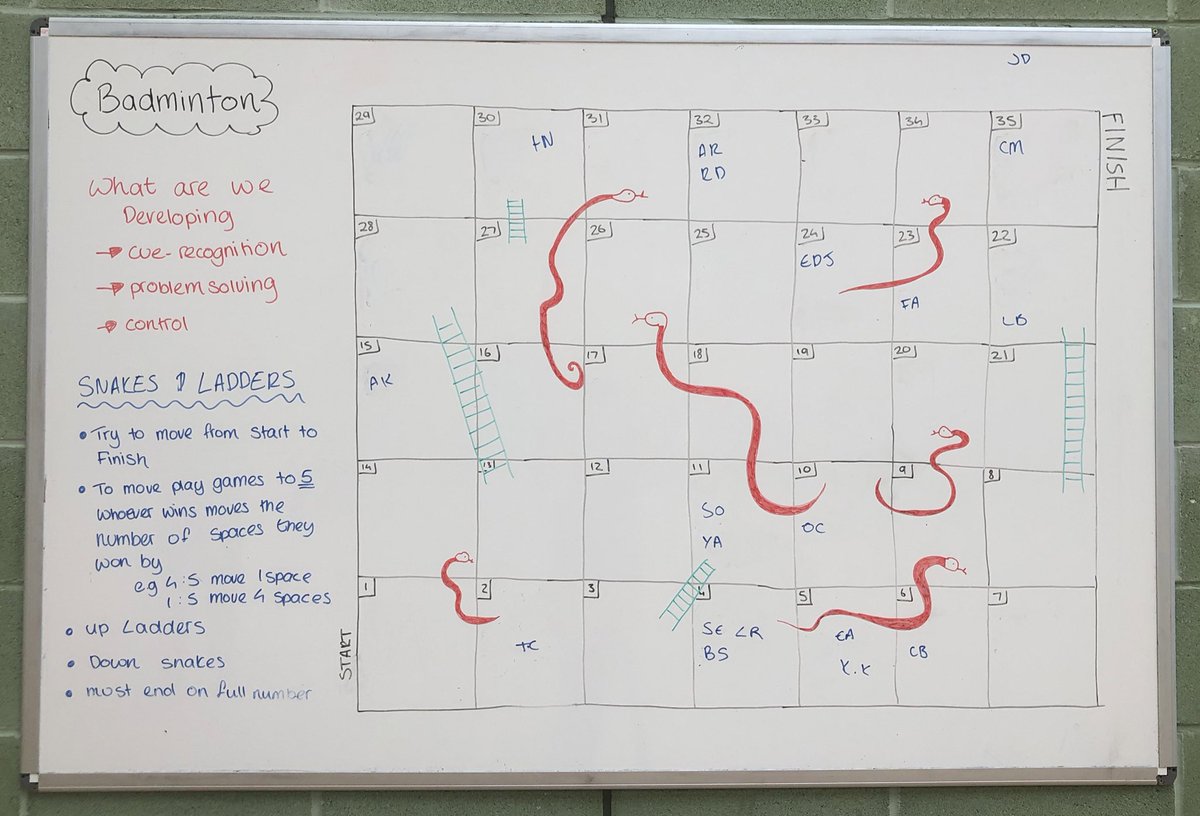 JD
Badminton
What are we
Developing
→ cue-recognition
→ problem solving
→ control
SNAKES & LADDERS
• Try to move from start to
Finish
• To move play games to 5
whoever wins moves the
number of spaces they
won by
eg 4:5 move 1 space
1:5 move 4 spaces
• up Ladders
• Down snakes
• must end on full number
START
FINISH
29 30 31 32 33 34 35
tN AR CM
RD
28 27 26 25 24 23 22
EDJ FA LB
15 16 17 18 19 20 21
AK
14 13 12 11 10 9 8
SO OC
YA
1 2 3 4 5 6 7
TC SE LR EA CB
BS K.K